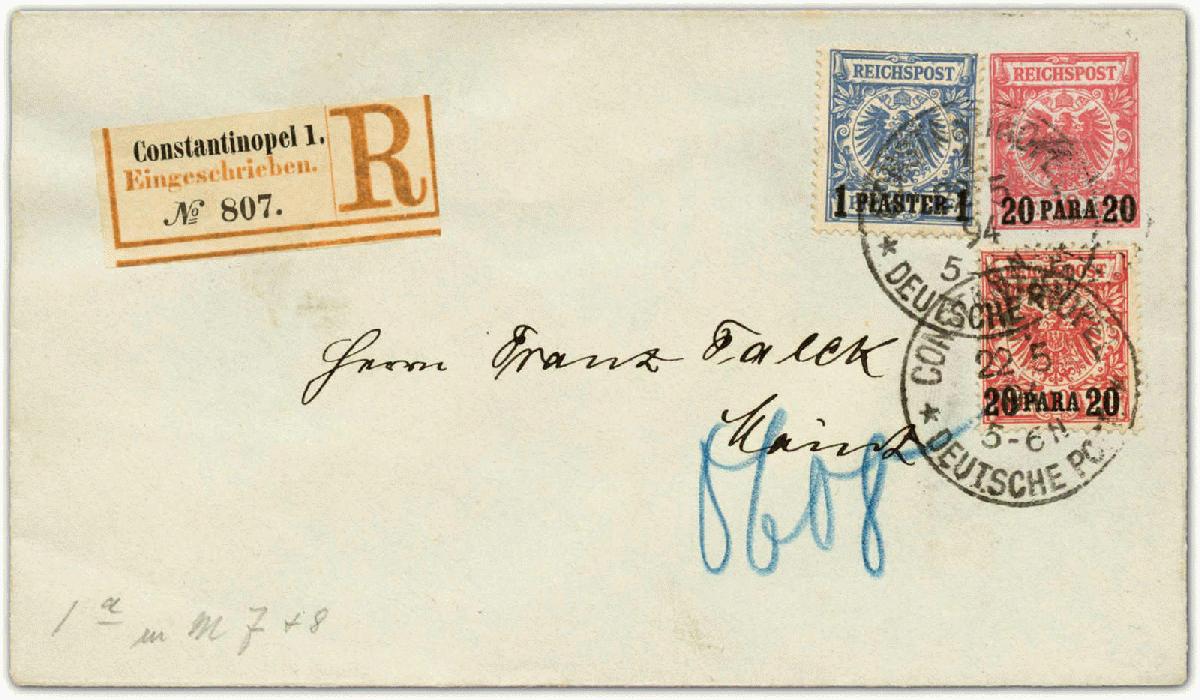 Constantinopel 1.
Eingeschrieben.
№ 807.
R
REICHSPOST
1 PIASTER 1
REICHSPOST
20 PARA 20
94
5
DEUTSCHE
REICHSPOST
20 PARA 20
CON
22 5
5-6N
* DEUTSCHE PO
Herrn Franz Falck
Mainz
1 a
in M 7 + 8